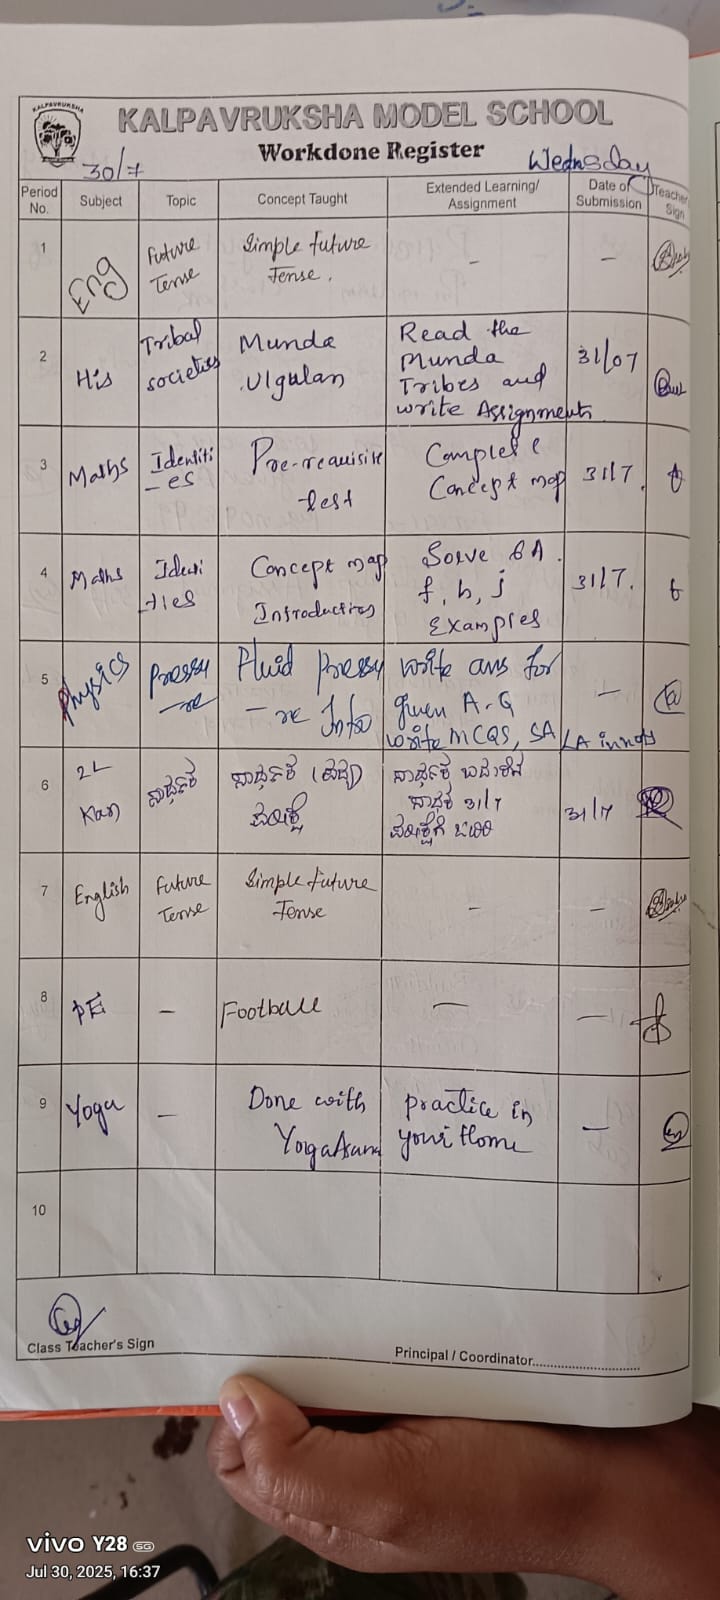 KALPAVRUKSHA
KALPAVRUKSHA MODEL SCHOOL
Workdone Register
30/7
Wednsday
Period No.
Subject
Topic
Concept Taught
Extended Learning/ Assignment
Date of Submission
Teacher Sign
1
Eng
Future
Tense
Simple future
Tense.
-
-
2
His
Tribal
societies
Munda
Ulgulan
Read the
Munda
Tribes and
write Assignments
31/07
3
Maths
Identiti
-es
Pre-requisite
test
Complete
Concept map
31/7.
4
Maths
Identi
-ties
Concept map
Introduction
Solve 6A.
f, h, j
Examples
31/7.
5
Physics
Pressu
-re
Fluid pressu
-re Into
write ans for
given A-Q
write MCQS, SA/LA in
-
6
2L
Kan
31/7
31/7
7
English
Future
Tense
Simple future
Tense
-
-
8
PE
-
Football
-
-
9
Yoga
-
Done with
YogaAsana
practice in
your Home
-
10
Class Teacher's Sign
Principal / Coordinator
vivo Y28 5G
Jul 30, 2025, 16:37